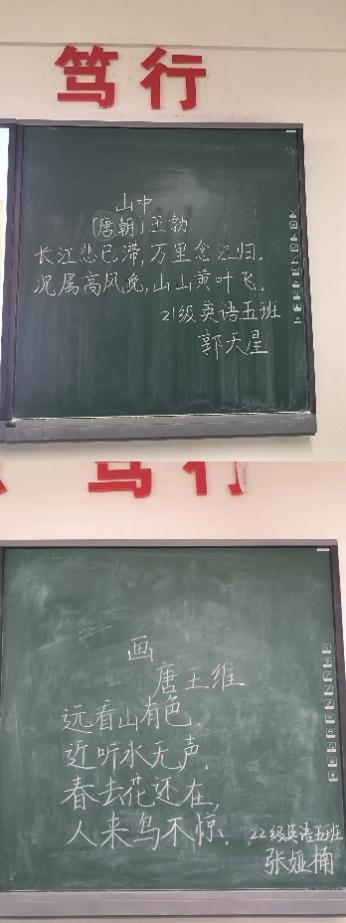 笃行
山中
[唐朝]王勃
长江悲已滞,万里念江归.
况属高风晚,山山黄叶飞.
21级英语五班
郭天星
笃行
画
唐王维
远看山有色.
近听水无声.
春去花还在,
人来鸟不惊.
22级英语五班
张娅楠